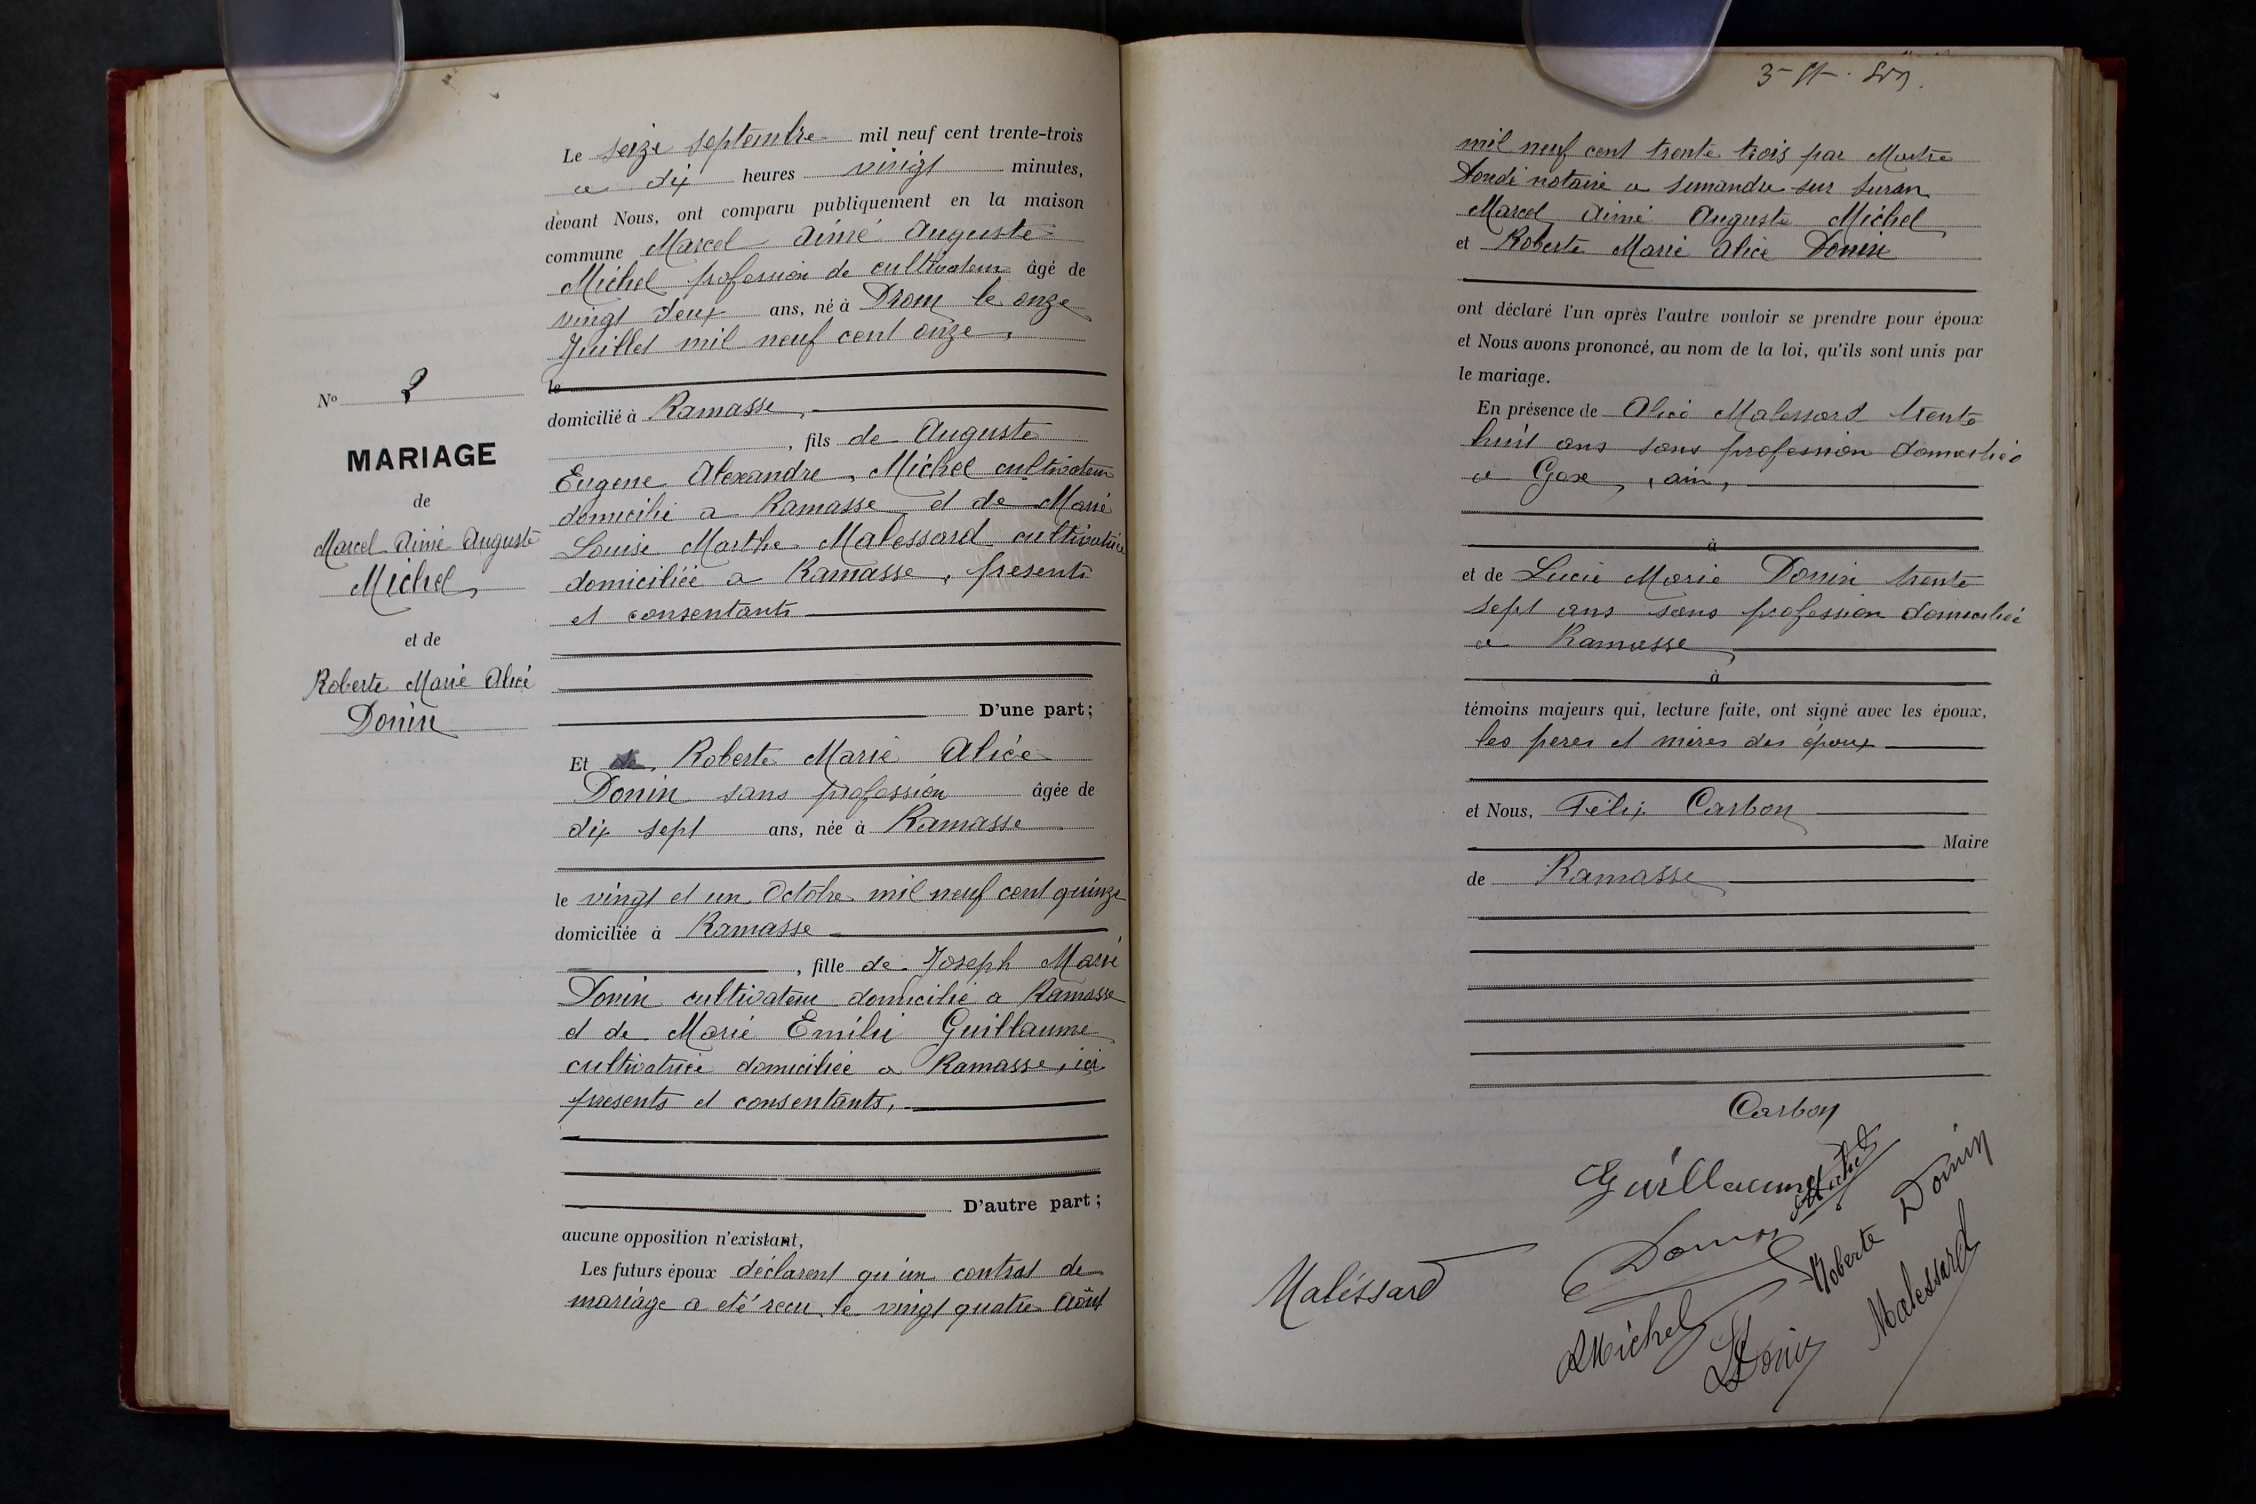 Le seize septembre mil neuf cent trente-trois
a dix heures vingt minutes,
devant Nous, ont comparu publiquement en la maison
commune Marcel Aimé Auguste
Michel profession de cultivateur âgé de
vingt deux ans, né à Drom le onze
Juillet mil neuf cent onze,
le
domicilié à Ramasse,
, fils de Auguste
Eugene Alexandre, Michel cultivateur
domicilié a Ramasse et de Marie
Louise Marthe Malessard cultivatrice
domiciliée a Ramasse, presents
et consentants
D'une part;
Nº 2
MARIAGE
de
Marcel Aimé Auguste
Michel,
et de
Roberte Marie Alice
Donin
Et Roberte Marie Alice
Donin sans profession âgée de
dix sept ans, née à Ramasse
le vingt et un Octobre mil neuf cent quinze
domiciliée à Ramasse
, fille de Joseph Marie
Donin cultivateur domicilié a Ramasse
et de Marie Emilie Guillaume
cultivatrice domiciliée a Ramasse, ici
presents et consentants,
D'autre part;
aucune opposition n'existant,
Les futurs époux déclarent qu'un contrat de
mariage a été recu le vingt quatre Août
mil neuf cent trente trois par Maitre
notaire a Simandre sur Suran
Marcel Aimé Auguste Michel
et Roberte Marie Alice Donin
ont déclaré l'un après l'autre vouloir se prendre pour époux
et Nous avons prononcé, au nom de la loi, qu'ils sont unis par
le mariage.
En présence de Alice Malessard trente
huit ans sans profession domiciliée
a Gex, ain,
à
et de Lucie Marie Donin trente
sept ans sans profession domiciliée
a Ramasse
à
témoins majeurs qui, lecture faite, ont signé avec les époux,
les peres et mères des époux
et Nous, Felix Carbon
Maire
de Ramasse
Carbon
Guillaume
Michel
Donin
Roberte Donin
Malessard
Michel
Donin
Malessard